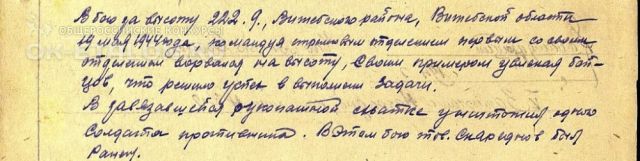 В бою за высоту 222.9, Витебского района, Витебской области
19 мая 1944 года, командуя стрелковым отделением первым со своим
отделением ворвался на высоту, своим примером увлекая бой-
цов, что решило успех в выполнении задачи.
В завязавшейся рукопашной схватке уничтожил одного
солдата противника. В этом бою тов. Скареднов был
Ранен.